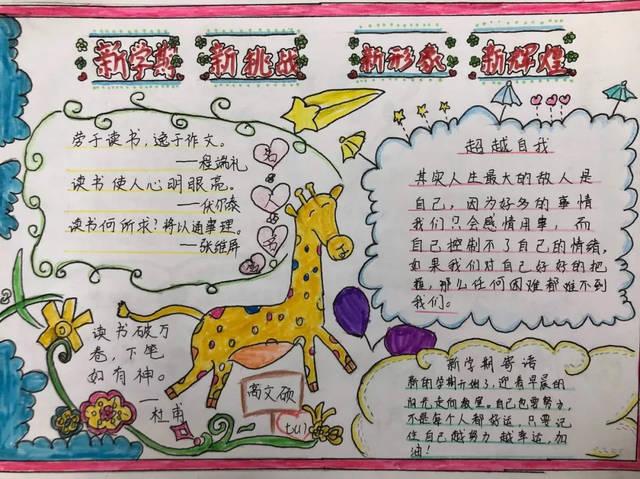 新学期 新挑战 新形象 新辉煌
劳于读书，逸于作文。
——程端礼
读书使人心明眼亮。
——伏尔泰
读书何所求？将以通事理。
——张维屏
超越自我
其实人生最大的敌人是
自己，因为好多的事情
我们只会感情用事，而
自己控制不了自己的情绪，
如果我们对自己好好的把
握，那么任何困难都难不到
我们。
读书破万
卷，下笔
如有神。
——杜甫
高文硕
七(1)
新学期寄语
新的学期开始了，迎着早晨的
阳光走向教室，自己也要努力，
不是每个人都好运，只要记
住自己越努力越幸运，加
油！